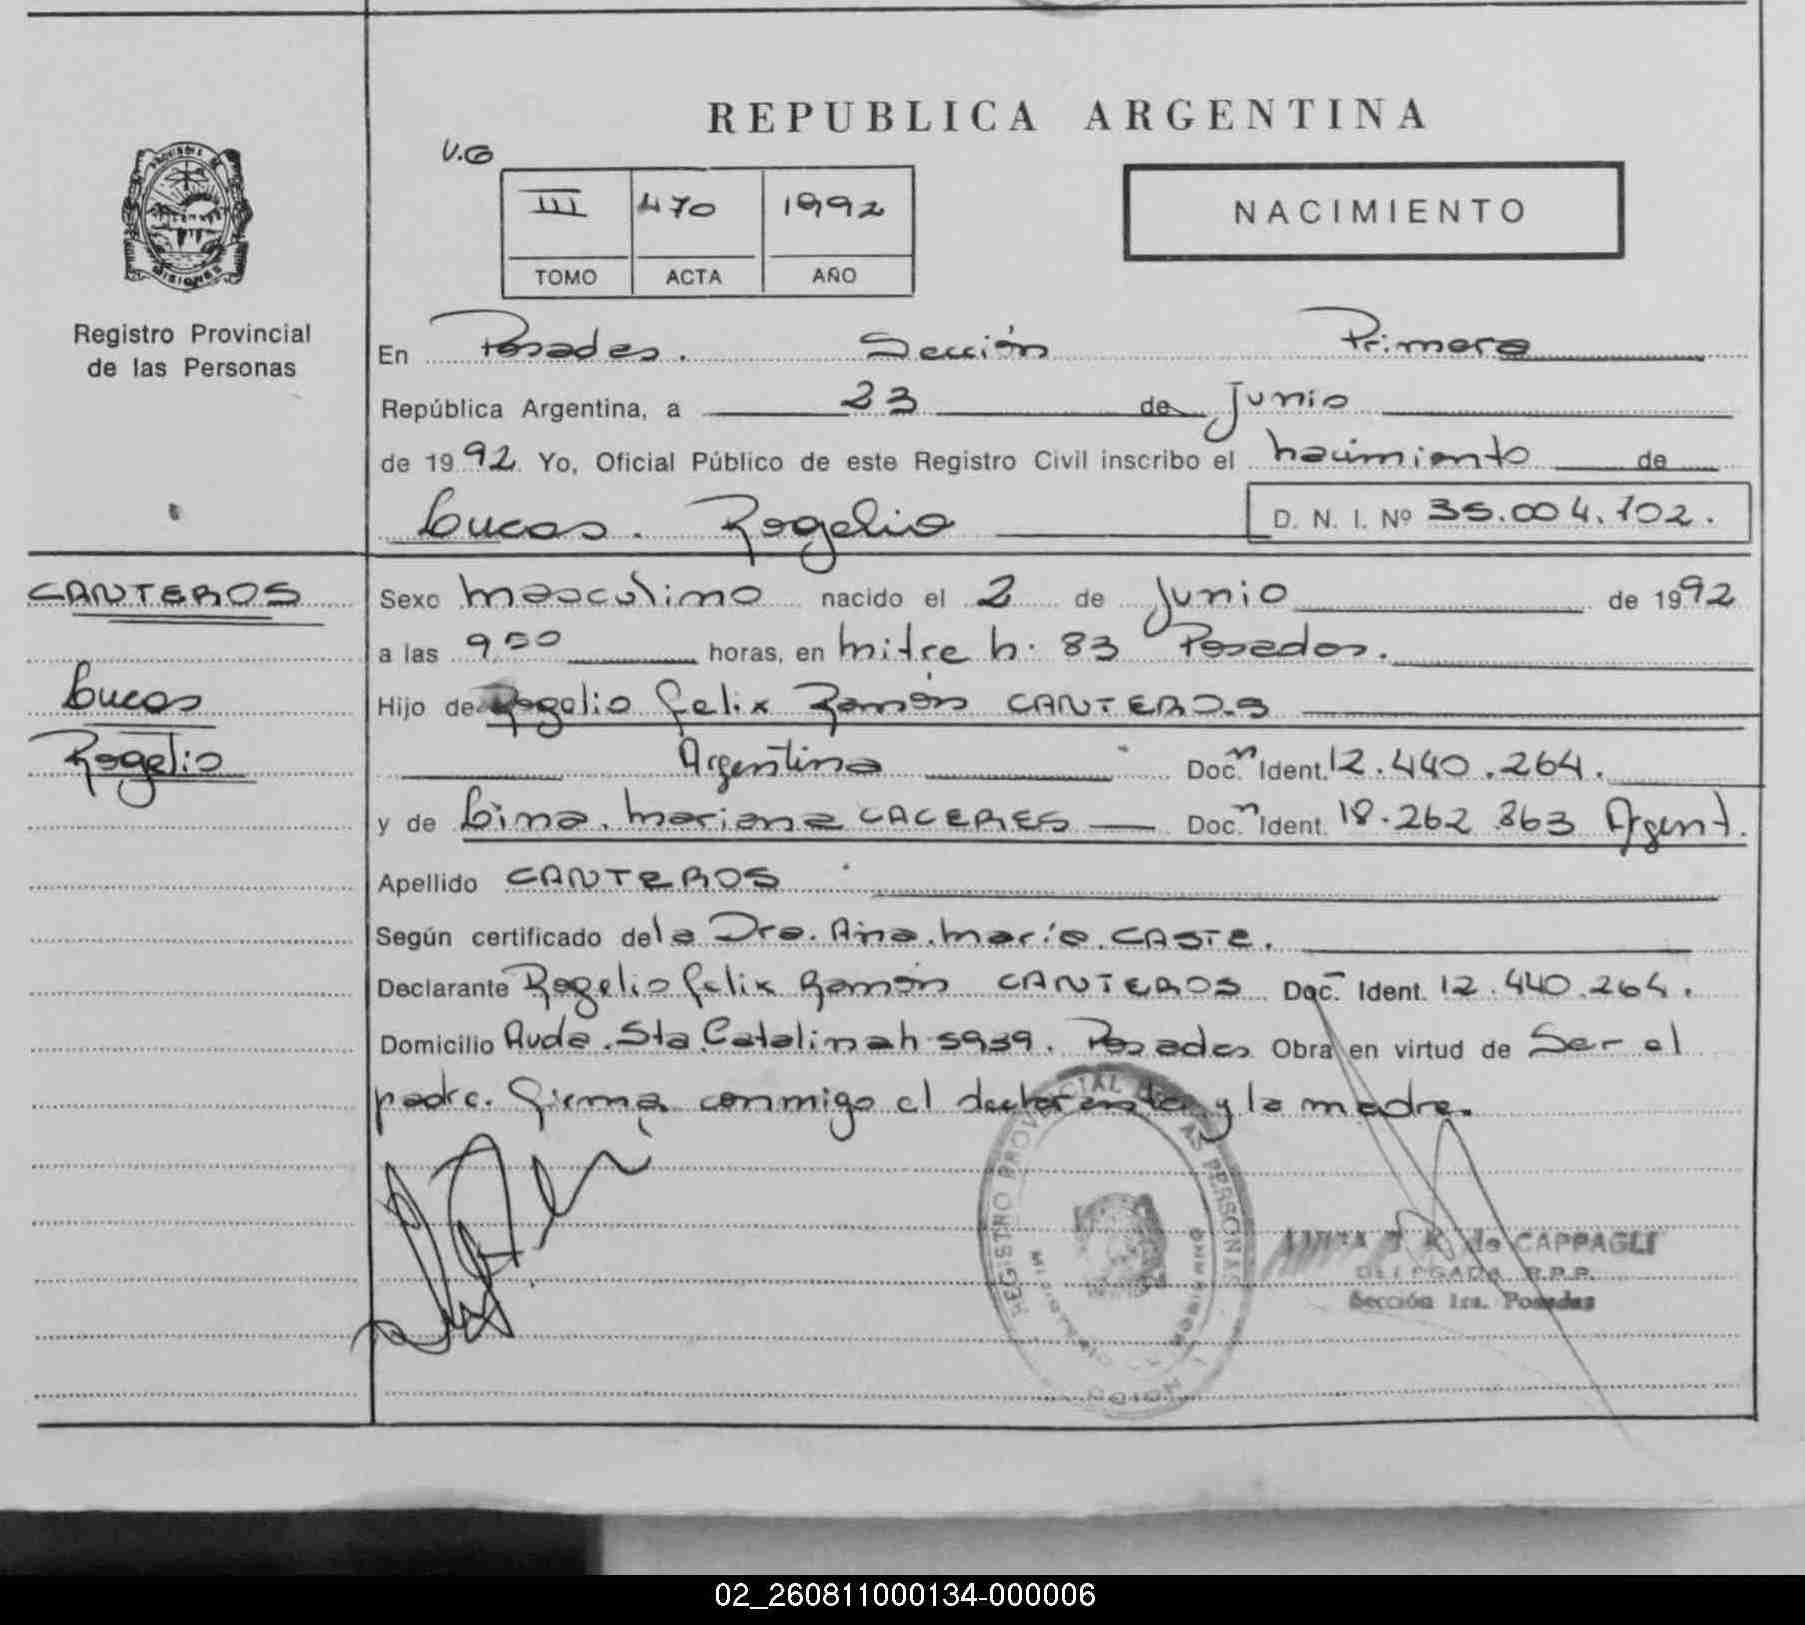 REPUBLICA ARGENTINA
V.G
III 470 1992
TOMO ACTA AÑO
NACIMIENTO
PROVINCIA DE
MISIONES
Registro Provincial
de las Personas
En Posadas. Sección Primera
República Argentina, a 23 de Junio
de 1992 Yo, Oficial Público de este Registro Civil inscribo el nacimiento de
Lucas. Rogelio D. N. I. Nº 35.004.102.
CANTEROS
Lucas
Rogelio
Sexo masculino nacido el 2 de Junio de 1992
a las 9 50 horas, en mitre n. 83 Posadas.
Hijo de Rogelio Felix Ramón CANTEROS
Argentina Doc.n Ident. 12.440.264.
y de Lina. mariana CACERES Doc.n Ident. 18.262 863 Argent.
Apellido CANTEROS
Según certificado de la Dra. Ana. maría. CASTE.
Declarante Rogelio Felix Ramón CANTEROS Doc. Ident. 12.440.264.
Domicilio Avda. Sta. Catalina n 5939. Posadas Obra en virtud de Ser el
padre. Firma conmigo el declarante y la madre.
REGISTRO PROVINCIAL DE LAS PERSONAS
de CAPPAGLI
DELEGADA R.P.P.
Sección 1ra. Posadas
02_260811000134-000006